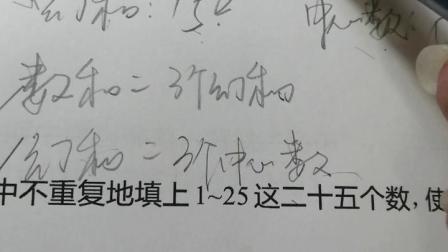 幻和:15
中心数:
数和=3个幻和
幻和=3个中心数
中不重复地填上1~25这二十五个数,使